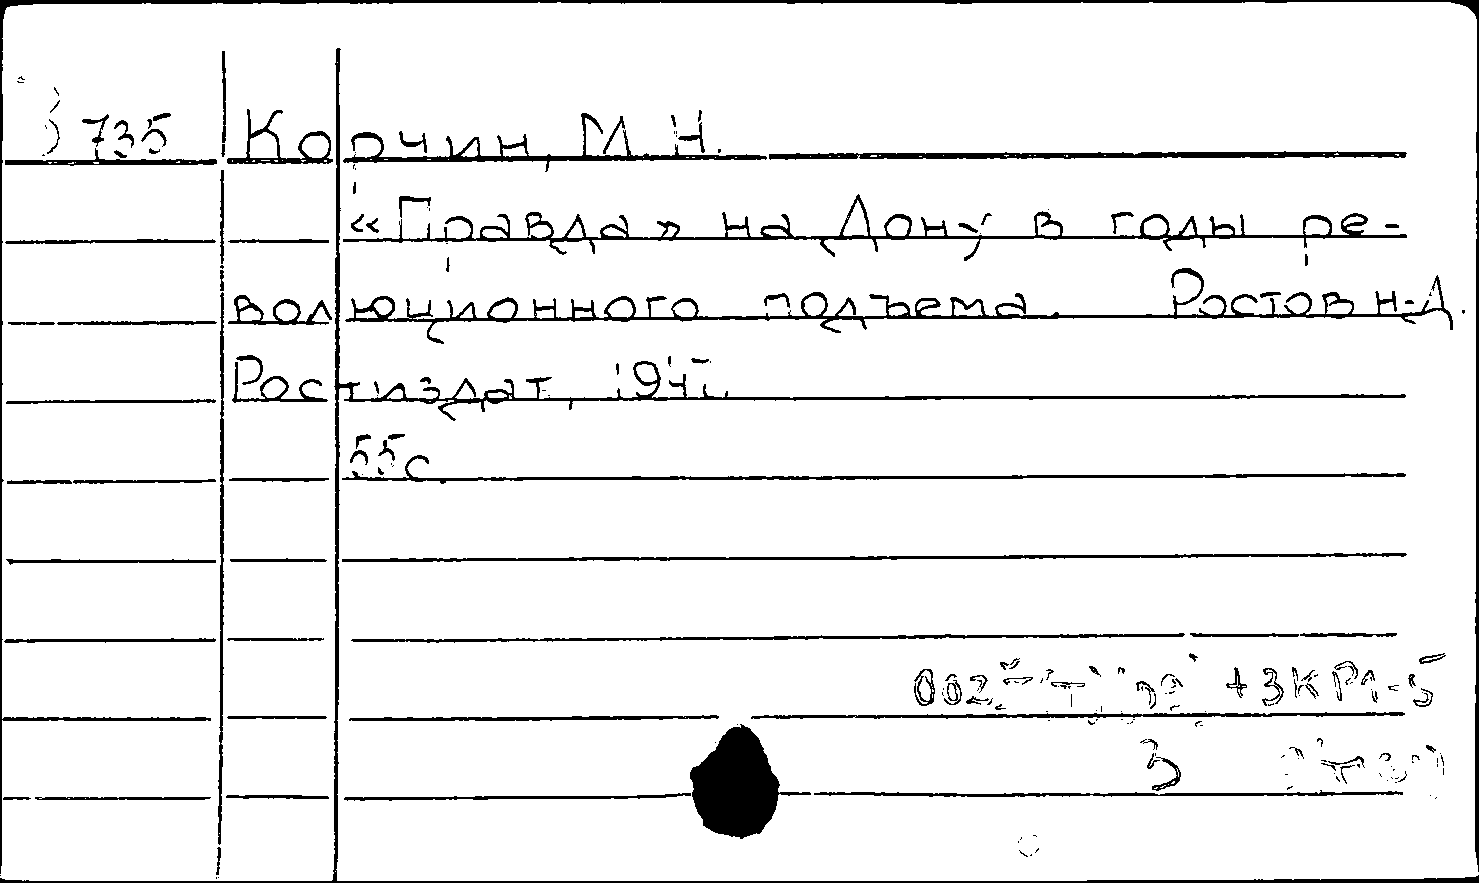 735 Корчин, М. Н.
«Правда» на Дону в годы ре-
волюционного подъема. Ростов н-Д.
Ростиздат,
55с.
+3КР1-5
3